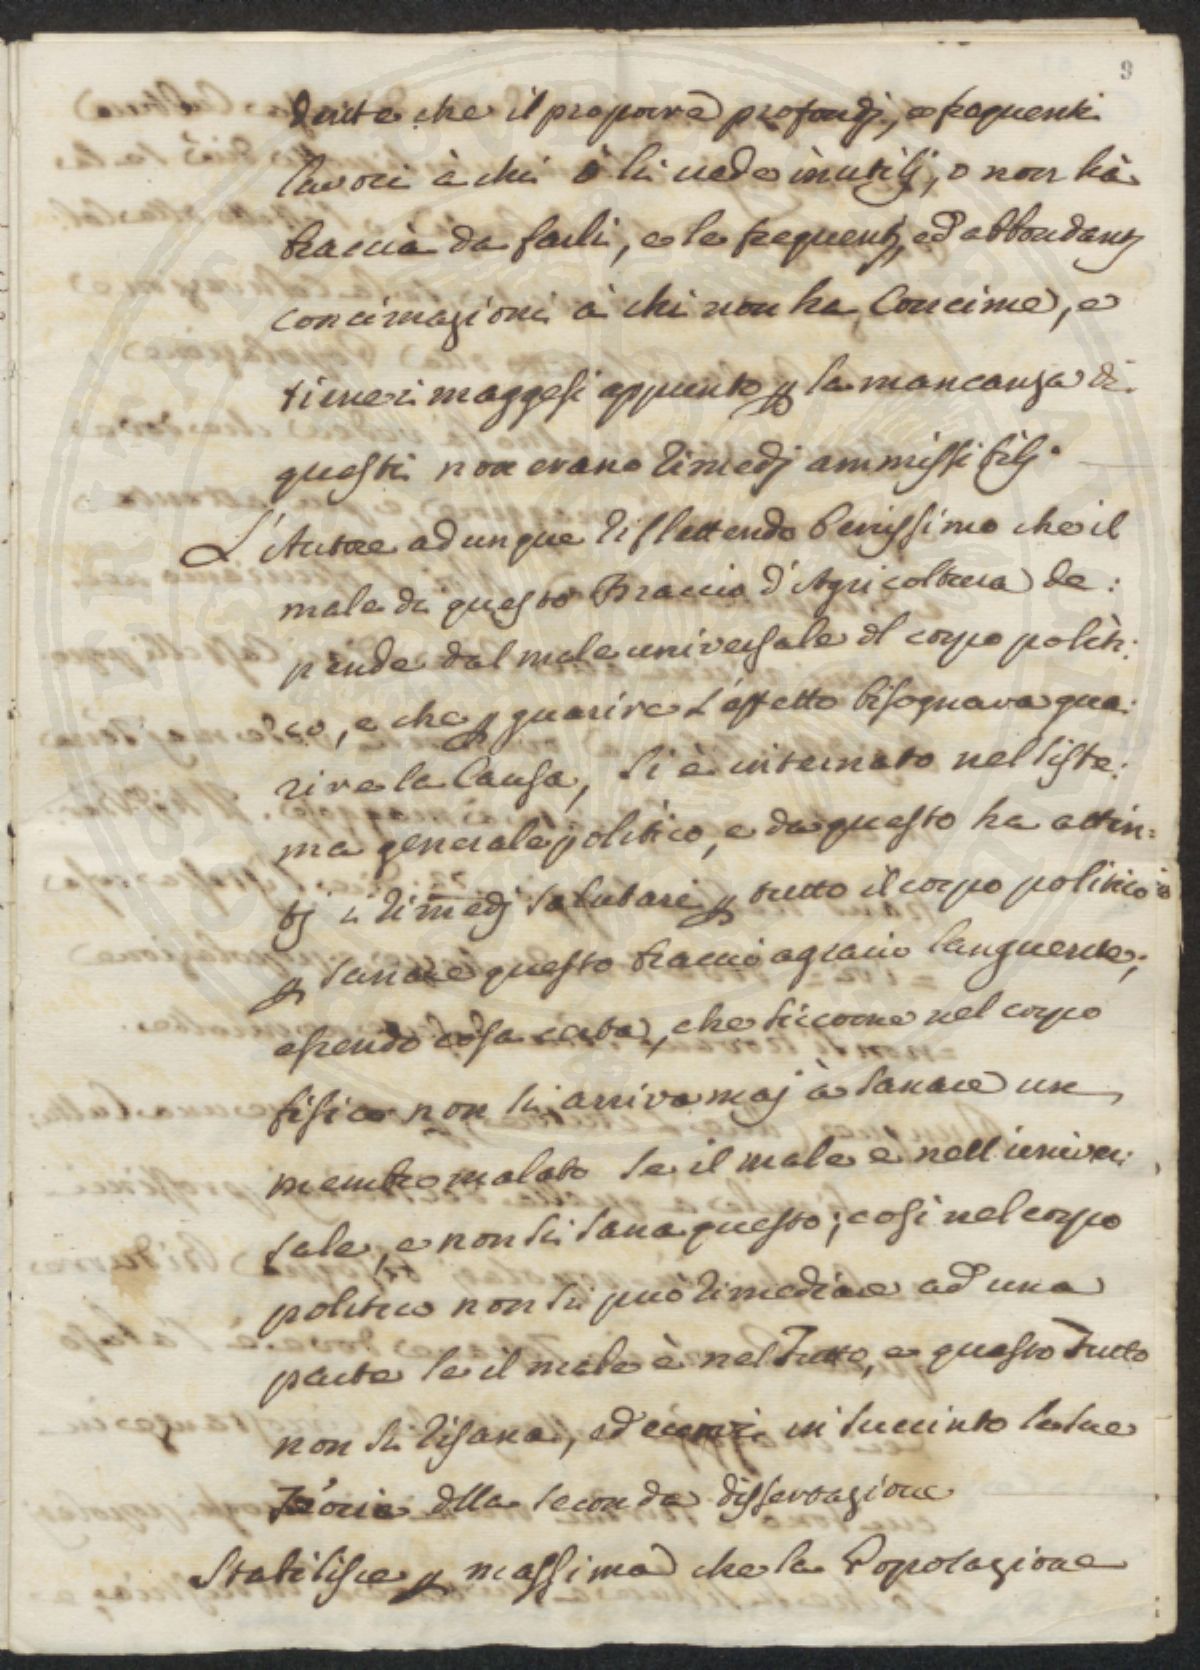 9
dente che il proporre profondj, e frequenti
lavori à chi ò li vede inutilj, o non hà
braccia da farli, e le frequentj, ed abbondantj
concimazioni à chi non ha Concime, e
tiene i maggesi appunto p la mancanza di
questi non erano rimedj ammissibilj.
L'Autore adunque riflettendo benissimo che il
male di questo Braccio d'Agricoltura de:
pende dal male universale dl corpo politi:
co, e che p guarire l'effetto bisognava gua:
rire la Causa, si è internato nel siste:
ma generale politico, e da questo ha attin=
tj i rimedj salutari p tutto il corpo politico
p sanare questo braccio agrario languente;
essendo cosa certa, che siccome nel corpo
fisico non si arriva maj à sanare un
membro malato se il male è nell'univer:
sale, e non si sana questo; così nel corpo
politico non si può rimediare ad una
parte se il male è nel Tutto, e questo Tutto
non si risana, ed in succinto le sue
Teorie dlla seconda dissertazione
Stabilisce p massima che la Popolazione